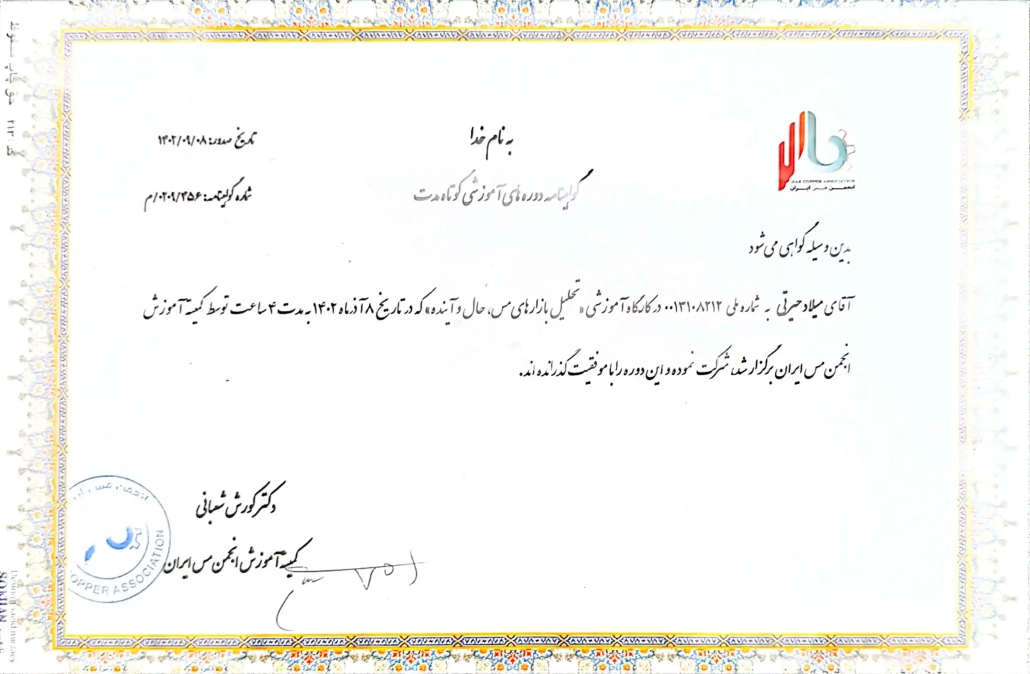 به نام خدا
گواهینامه دوره های آموزشی کوتاه مدت
تاریخ صدور: ۱۴۰۲/۰۹/۰۸
شماره گواهینامه: ۰۲۰۹/۳۵۶/م
IRAN COPPER ASSOCIATION
انجمن مس ایران
بدین وسیله گواهی می شود
آقای میلاد حیرتی به شماره ملی ۰۰۱۳۱۰۸۲۱۲ در کارگاه آموزشی «تحلیل بازارهای مس، حال و آینده» که در تاریخ ۸ آذر ماه ۱۴۰۲ به مدت ۴ ساعت توسط کمیته آموزش
انجمن مس ایران برگزار شد، شرکت نموده و این دوره را با موفقیت گذرانده اند.
دکتر کورش شعبانی
کمیته آموزش انجمن مس ایران
OPPER ASSOCIATION